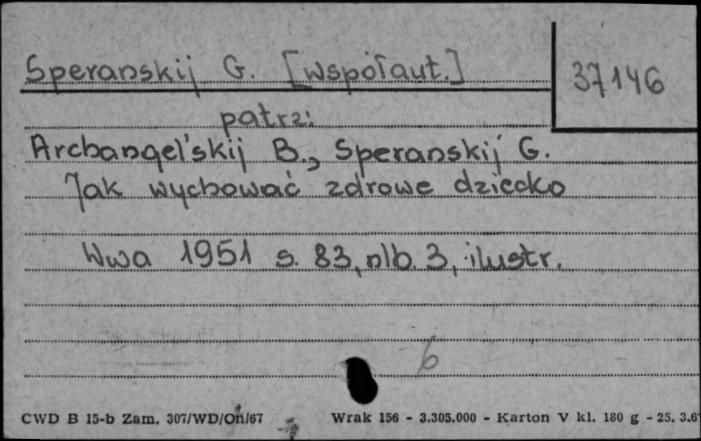 Speranskij G. [współaut.]
37146
patrz:
Archangel'skij B., Speranskij G.
Jak wychować zdrowe dziecko
Wwa 1951 s. 83, nlb. 3, ilustr.
6
CWD B 15-b Zam. 307/WD/Oń/67 Wrak 156 - 3.305.000 - Karton V kl. 180 g - 25. 3.6